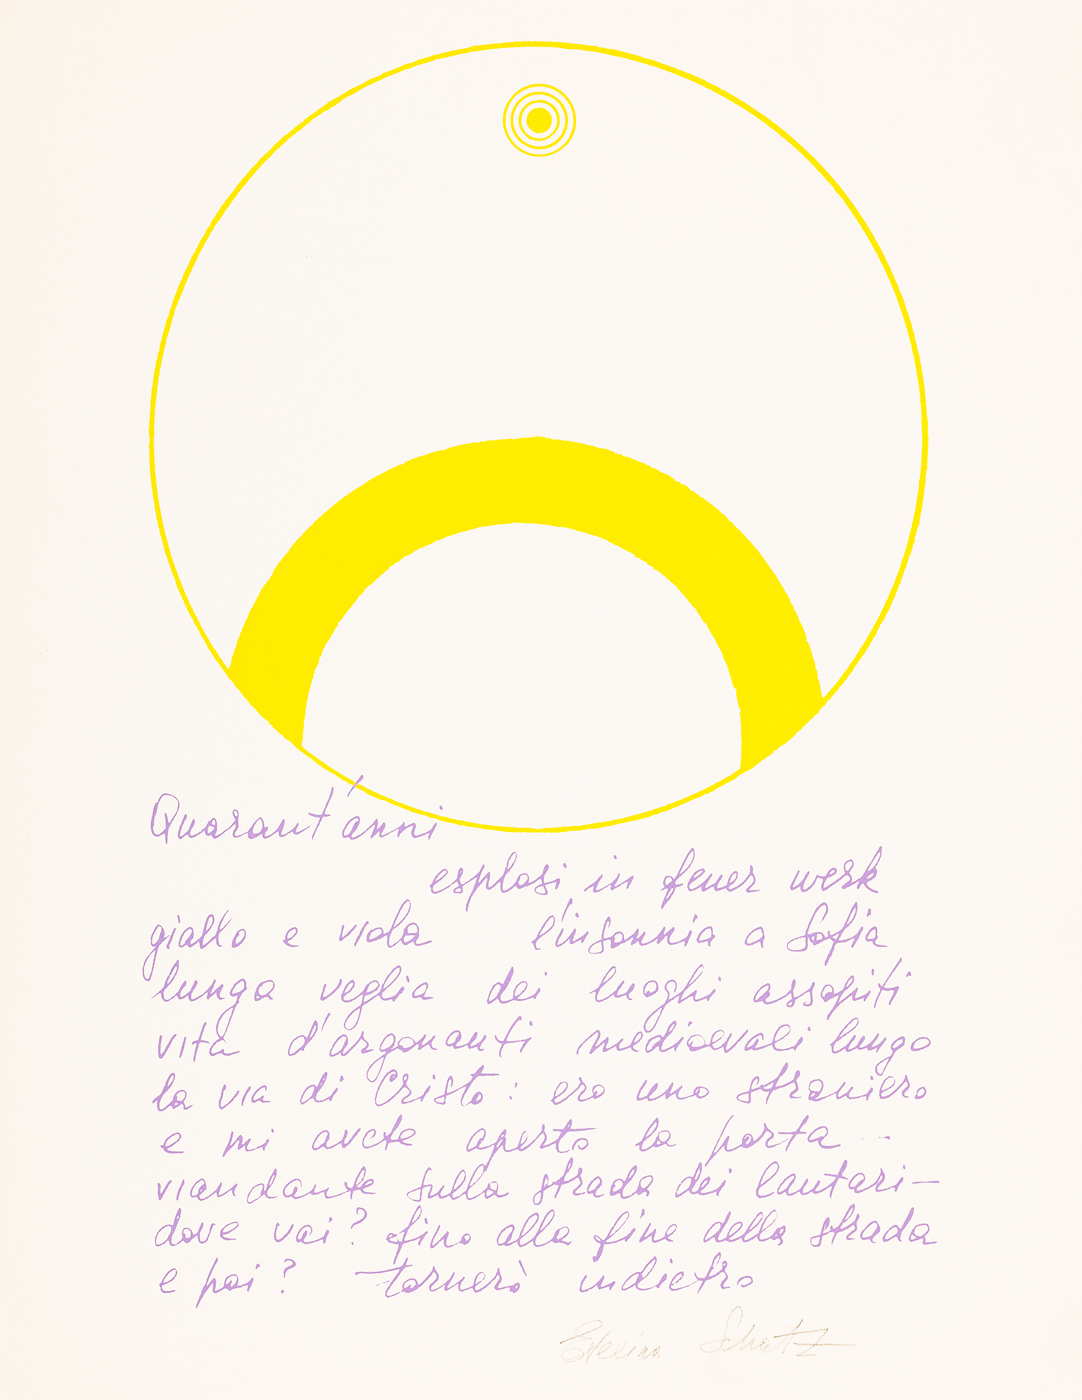 Quarant'anni
esplosi in feuer werk
giallo e viola l'insonnia a Sofia
lunga veglia dei luoghi assopiti
vita d'argonauti medioevali lungo
la via di Cristo: ero uno straniero
e mi avete aperto la porta ..
viandante sulla strada dei lautari–
dove vai? fino alla fine della strada
e poi? tornerò indietro
Evelina Schatz